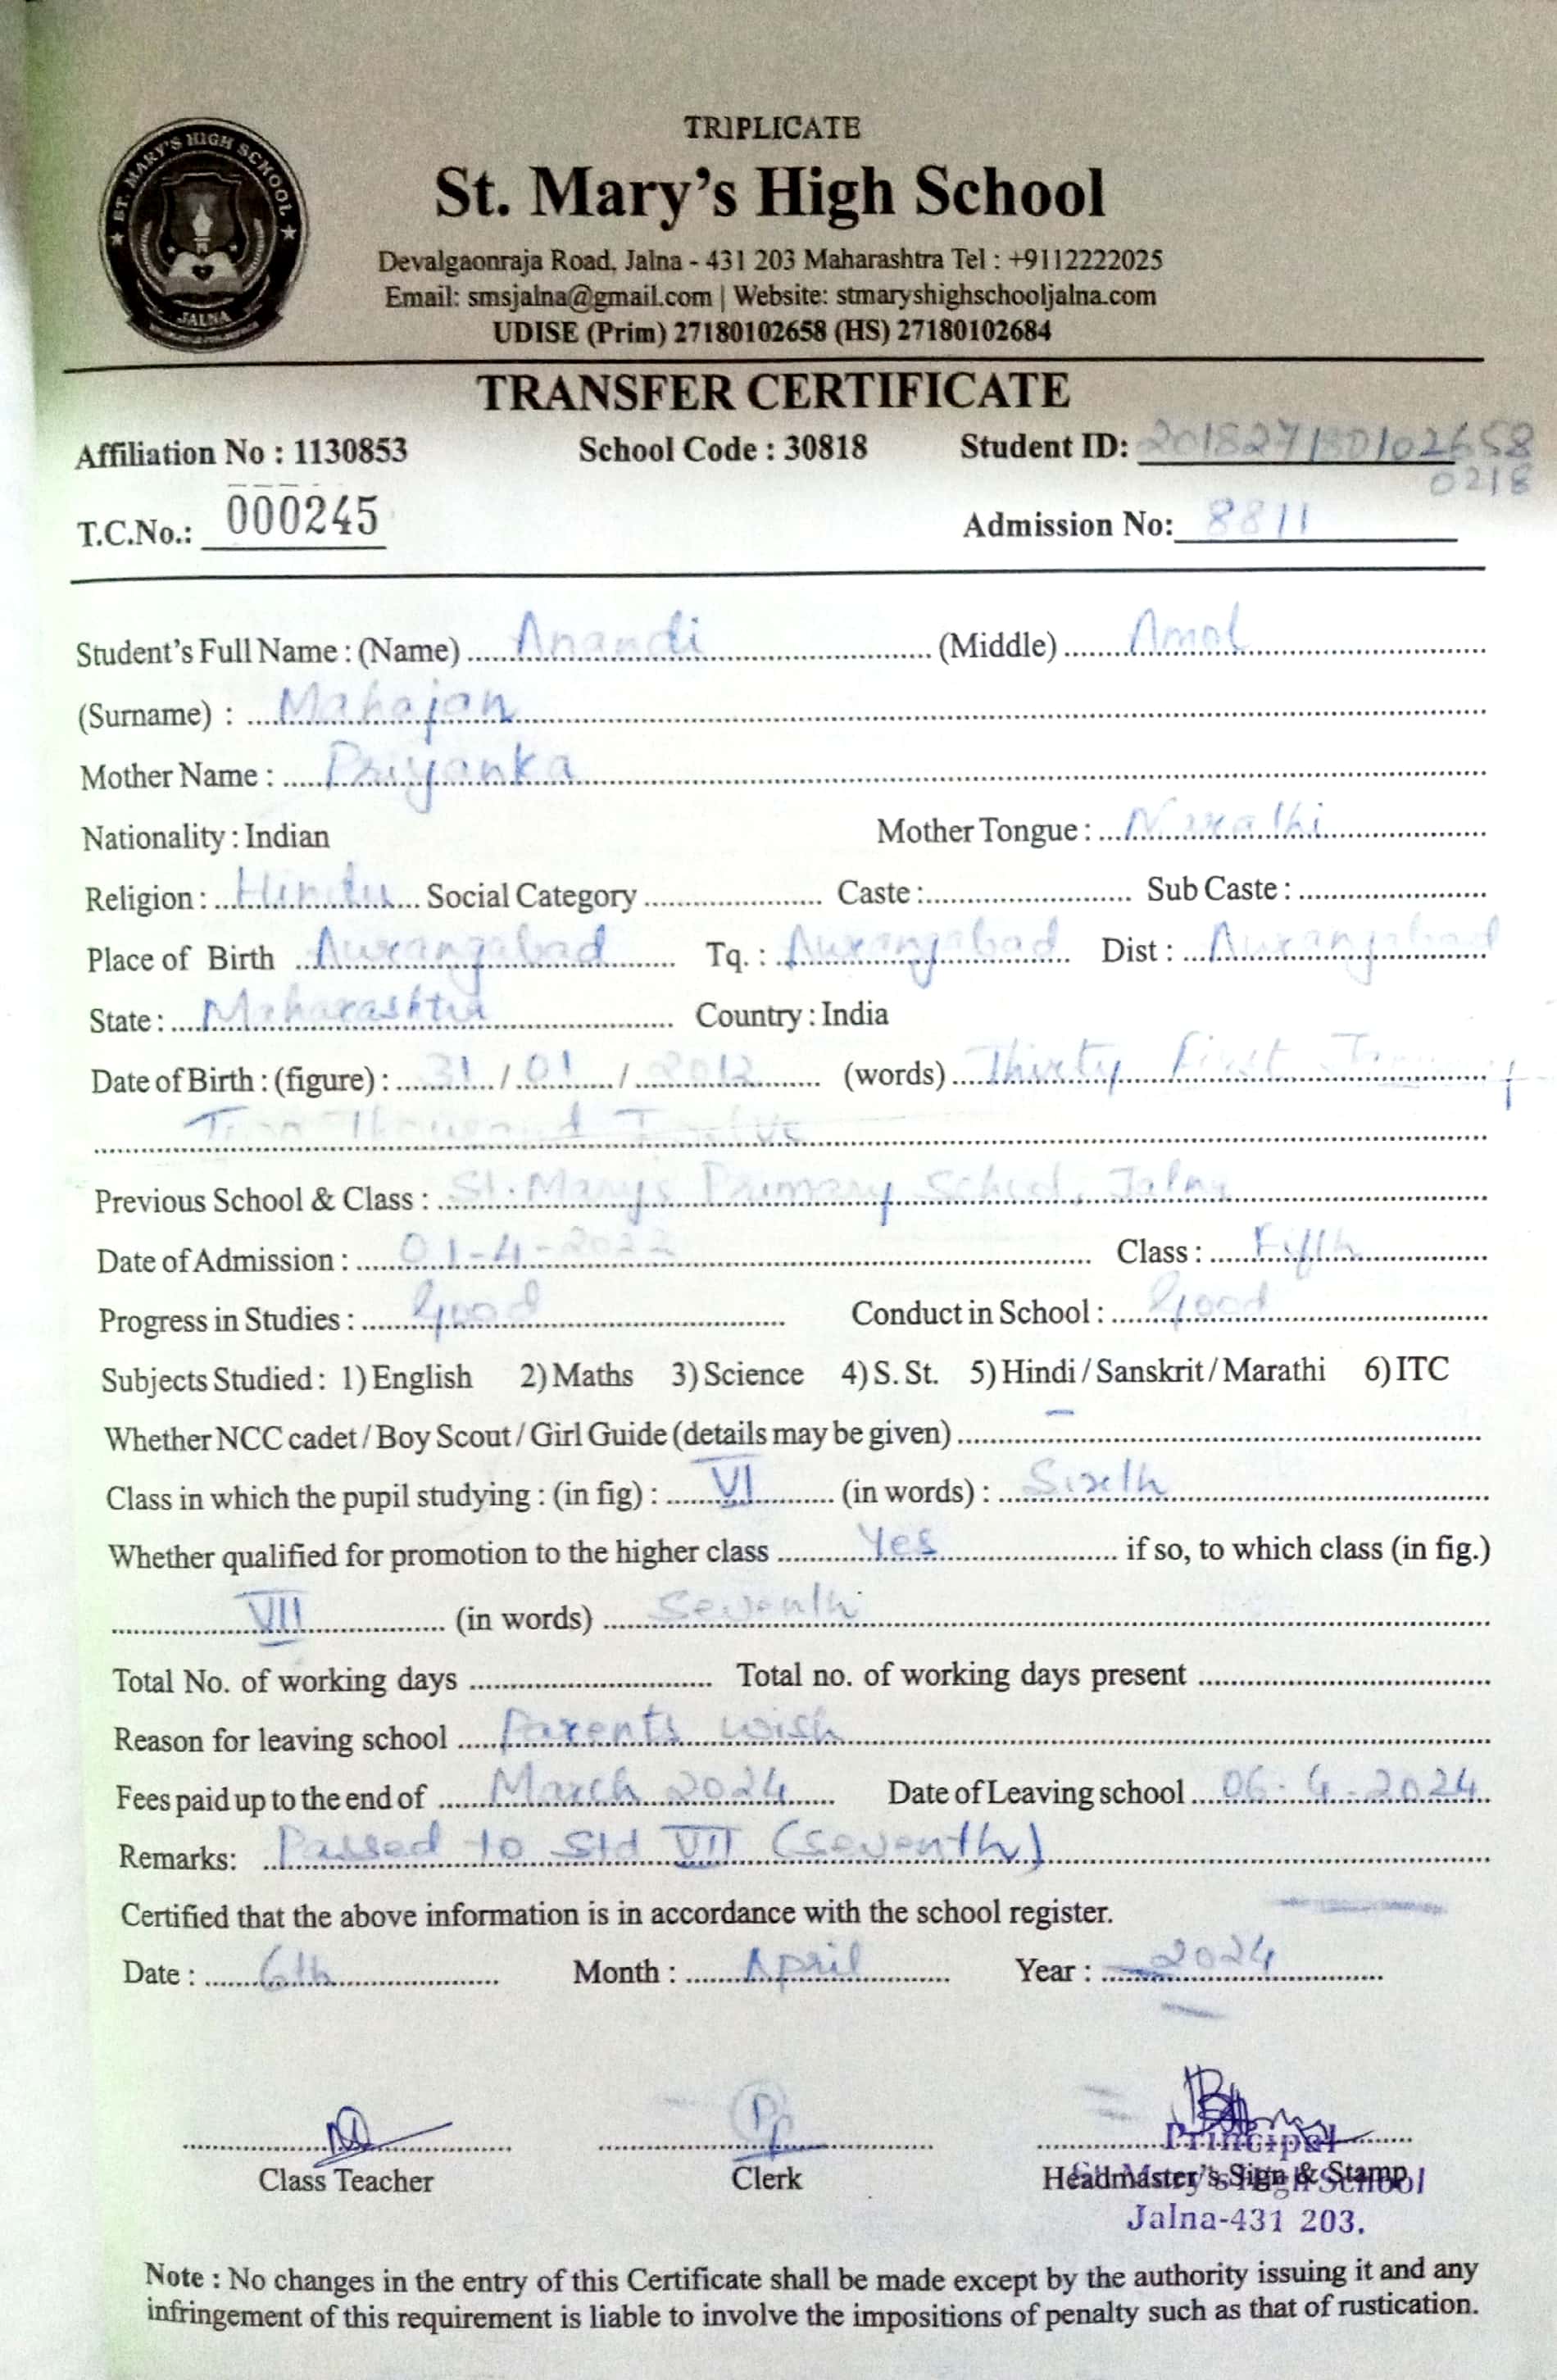 TRIPLICATE
ST. MARY'S HIGH SCHOOL
JALNA
St. Mary's High School
Devalgaonraja Road, Jalna - 431 203 Maharashtra Tel : +9112222025
Email: smsjalna@gmail.com | Website: stmaryshighschooljalna.com
UDISE (Prim) 27180102658 (HS) 27180102684
TRANSFER CERTIFICATE
Affiliation No : 1130853 School Code : 30818 Student ID: 201827180102658
0218
T.C.No.: 000245 Admission No: 8811
Student's Full Name : (Name) Anandi (Middle) Amol
(Surname) : Mahajan
Mother Name : Priyanka
Nationality : Indian Mother Tongue : Marathi
Religion : Hindu Social Category Caste : Sub Caste :
Place of Birth Aurangabad Tq. : Aurangabad Dist : Aurangabad
State : Maharashtra Country : India
Date of Birth : (figure) : 31 / 01 / 2012 (words) Thirty First January
Two Thousand Twelve
Previous School & Class : St. Marys Primary School, Jalna
Date of Admission : 01-4-2022 Class : Fifth
Progress in Studies : Good Conduct in School : Good
Subjects Studied : 1) English 2) Maths 3) Science 4) S. St. 5) Hindi / Sanskrit / Marathi 6) ITC
Whether NCC cadet / Boy Scout / Girl Guide (details may be given) –
Class in which the pupil studying : (in fig) : VI (in words) : Sixth
Whether qualified for promotion to the higher class Yes if so, to which class (in fig.)
VII (in words) Seventh
Total No. of working days Total no. of working days present
Reason for leaving school Parents wish
Fees paid up to the end of March 2024 Date of Leaving school 06-4-2024
Remarks: Passed to Std VII (seventh)
Certified that the above information is in accordance with the school register.
Date : 6th Month : April Year : 2024
Principal
Class Teacher Clerk Headmaster's Sign & Stamp
St. Mary's High School
Jalna-431 203.
Note : No changes in the entry of this Certificate shall be made except by the authority issuing it and any
infringement of this requirement is liable to involve the impositions of penalty such as that of rustication.